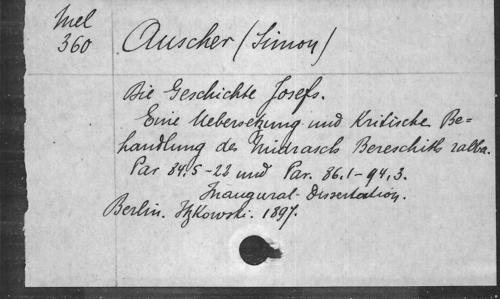 Mel
360
Auscher (Simon)
Die Geschichte Josefs.
Eine Uebersetzung und Kritische Be=
handlung des Midrasch Bereschith rabba.
Par 84.5-22 und Par. 86.1-94,3.
Inaugural-Dissertation.
Berlin. Itzkowski. 1897.